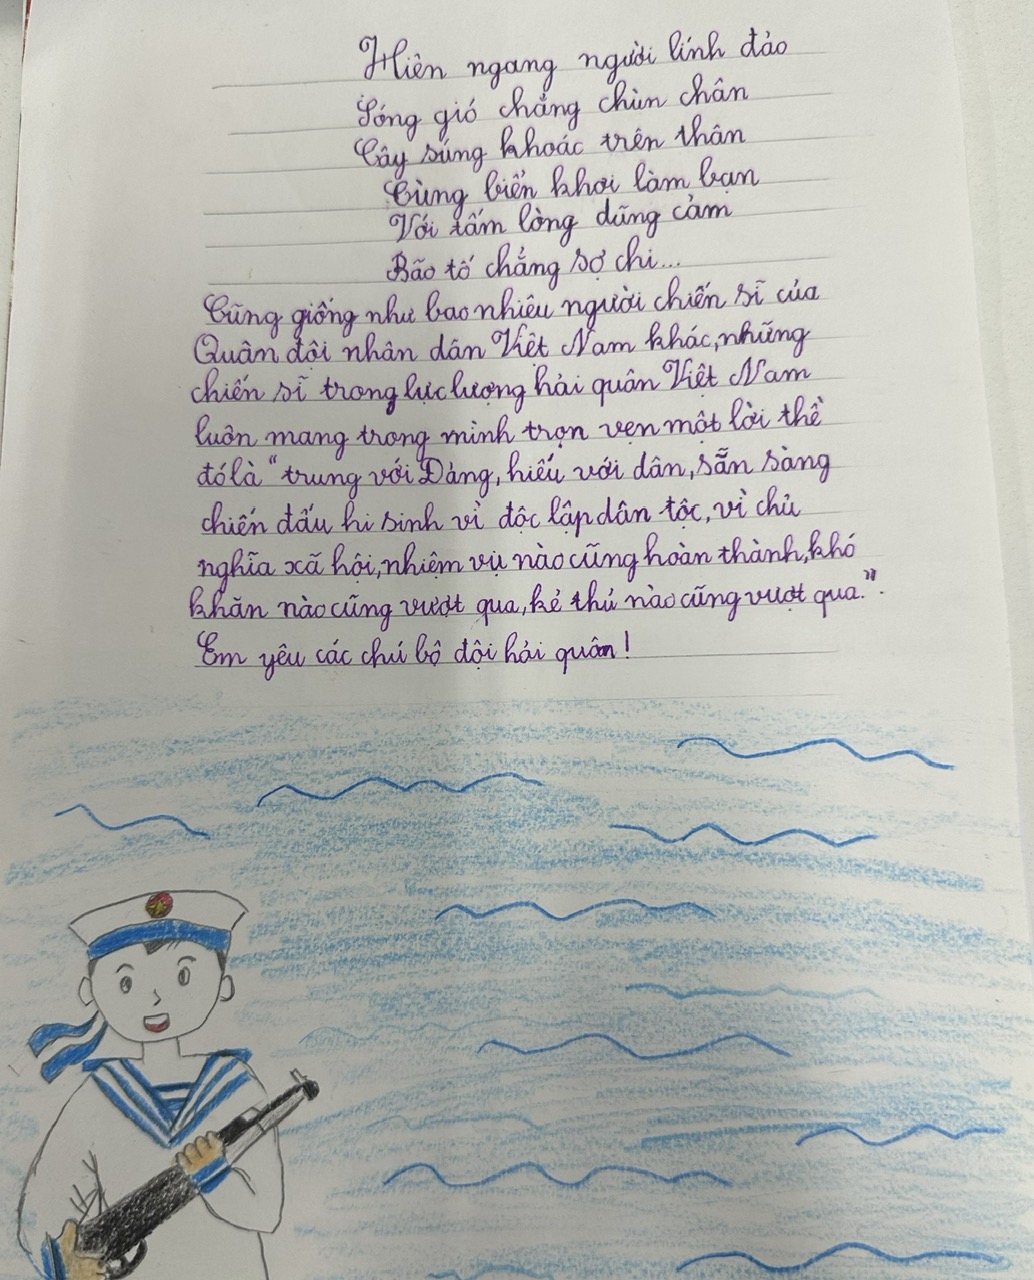 Hiên ngang người lính đảo
Sóng gió chẳng chùn chân
Cây súng khoác trên thân
Cùng biển khơi làm bạn
Với tấm lòng dũng cảm
Bão tố chẳng sợ chi...
Cũng giống như bao nhiêu người chiến sĩ của
Quân đội nhân dân Việt Nam khác, những
chiến sĩ trong lực lượng hải quân Việt Nam
luôn mang trong mình trọn vẹn một lời thề
đó là “trung với Đảng, hiếu với dân, sẵn sàng
chiến đấu hi sinh vì độc lập dân tộc, vì chủ
nghĩa xã hội, nhiệm vụ nào cũng hoàn thành, khó
khăn nào cũng vượt qua, kẻ thù nào cũng vượt qua.”.
Em yêu các chú bộ đội hải quân!